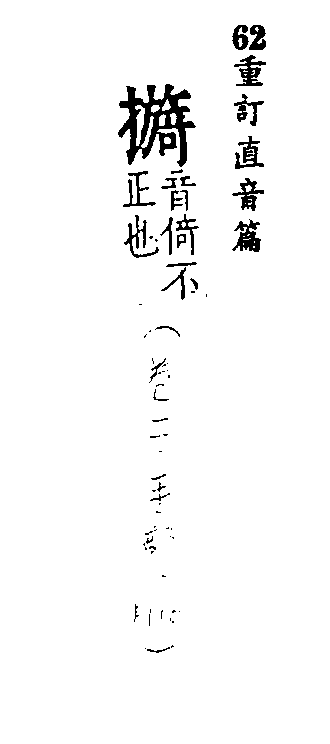 62重訂直音篇
音倚不
正也
（卷二·手部·）